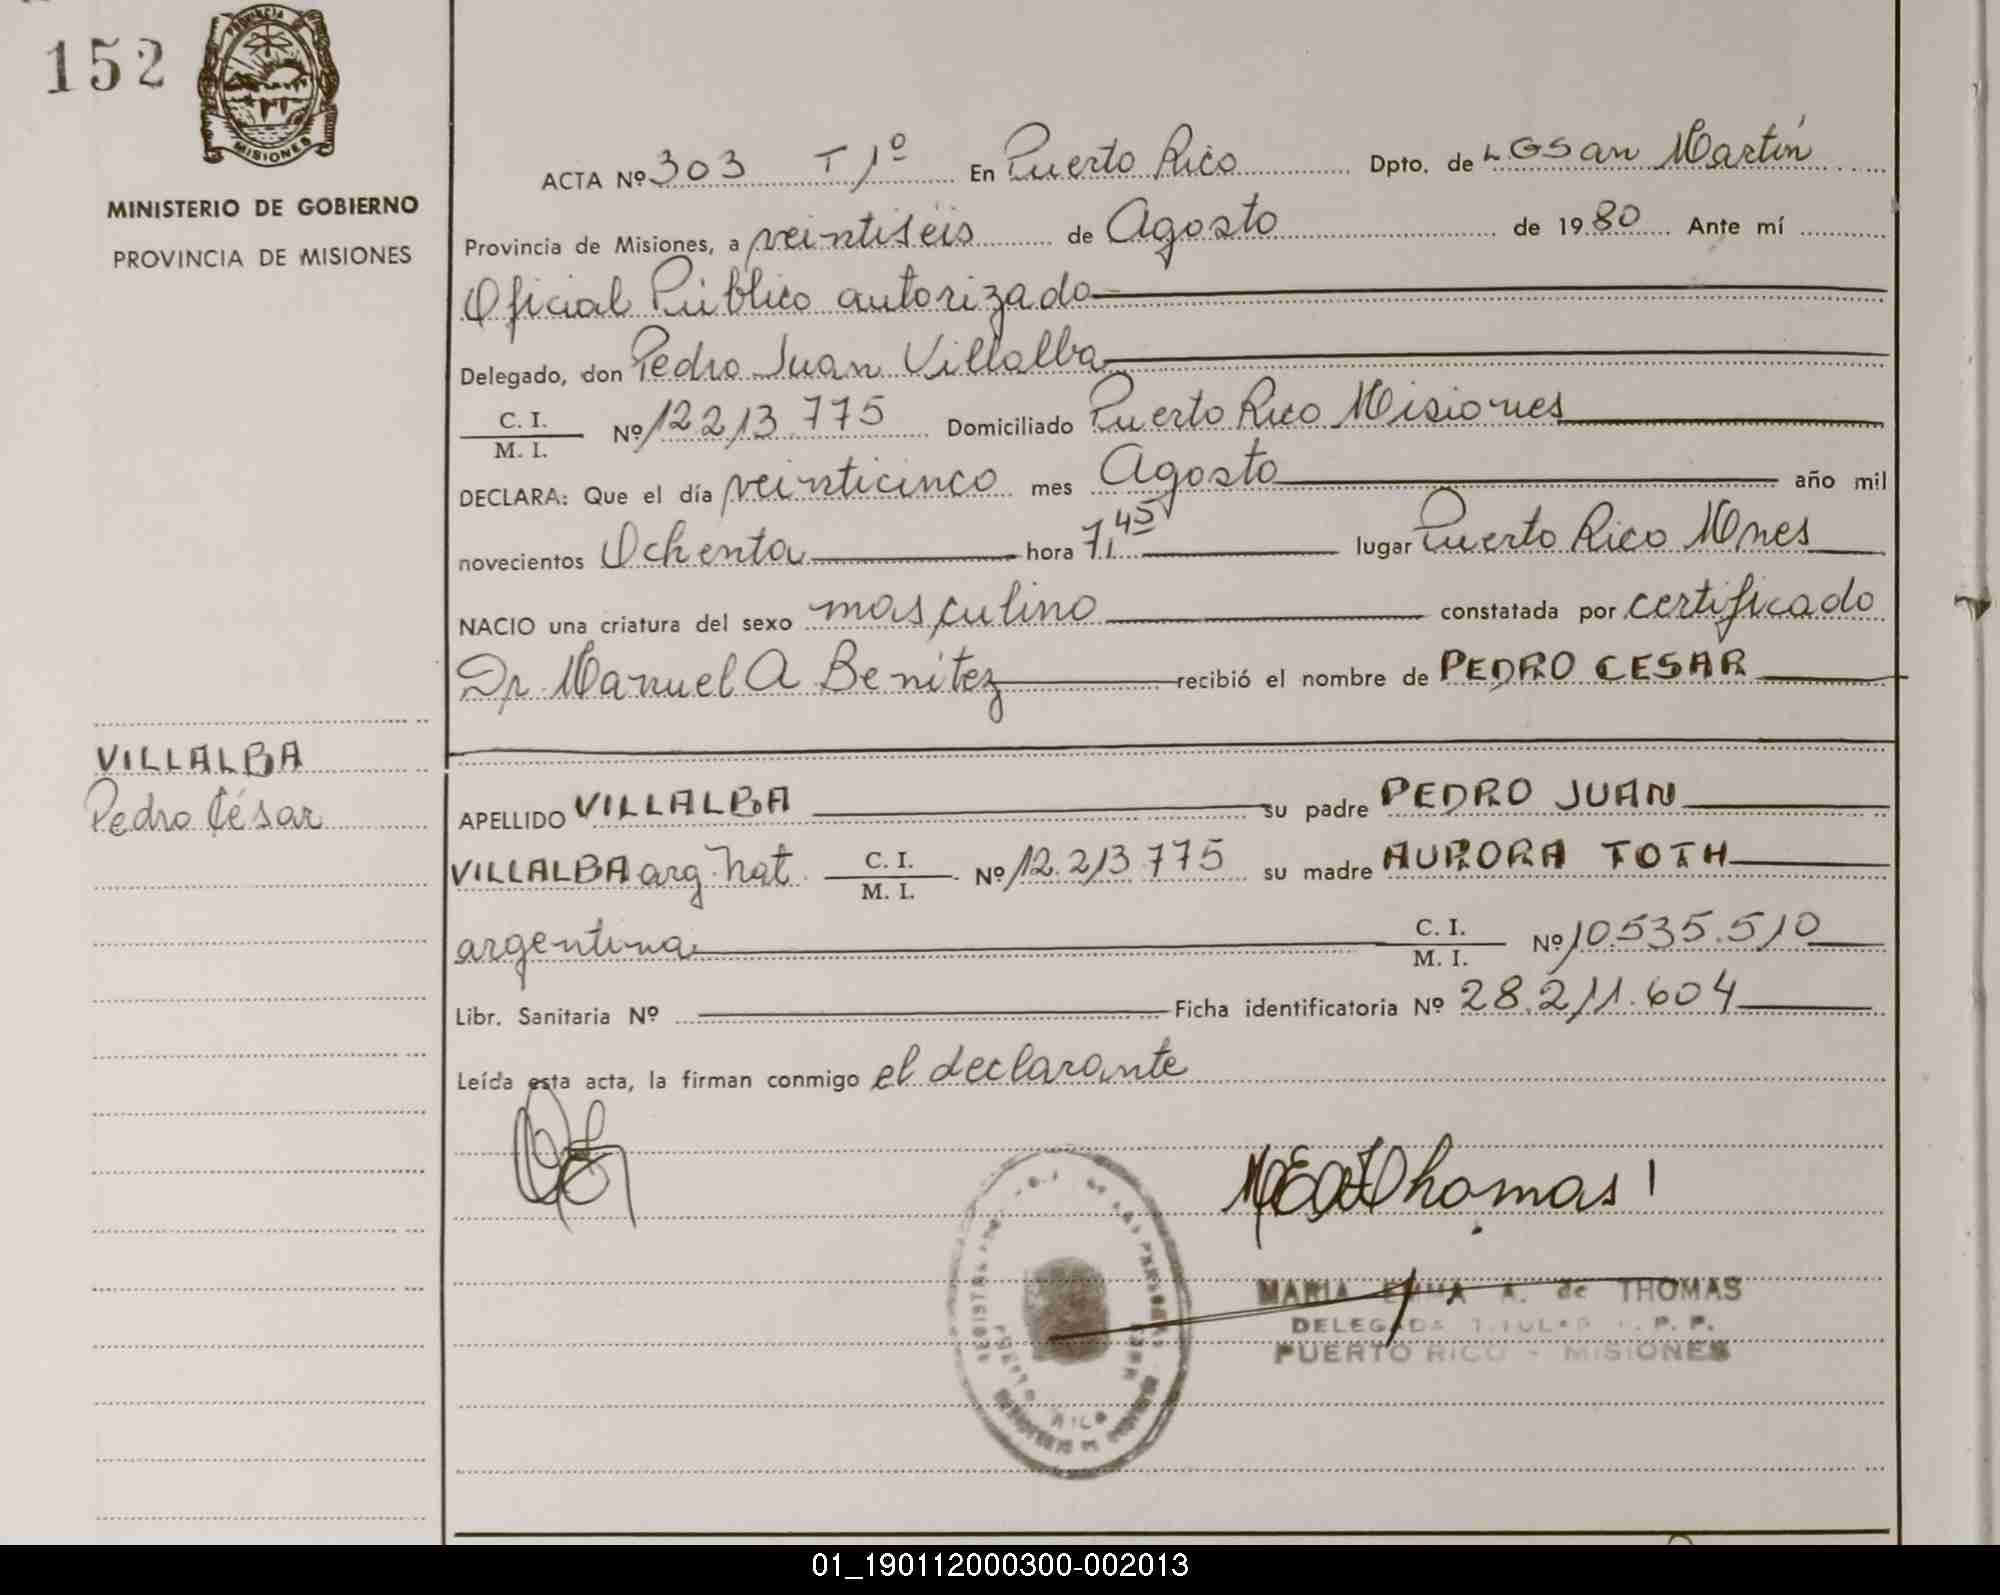 152
PROVINCIA
MISIONES
MINISTERIO DE GOBIERNO
PROVINCIA DE MISIONES
ACTA Nº 303 T 1º En Puerto Rico Dpto. de LGSan Martín
Provincia de Misiones, a veintiséis de Agosto de 1980 Ante mí
Oficial Público autorizado
Delegado, don Pedro Juan Villalba
C. I.
M. I.
Nº 12 213 775 Domiciliado Puerto Rico Misiones
DECLARA: Que el día veinticinco mes Agosto año mil
novecientos Ochenta hora 7,45 lugar Puerto Rico Mnes
NACIO una criatura del sexo masculino constatada por certificado
Dr. Manuel A Benitez recibió el nombre de PEDRO CESAR
VILLALBA
Pedro César
APELLIDO VILLALBA su padre PEDRO JUAN
VILLALBA arg. Nat. C. I.
M. I.
Nº 12.213.775 su madre AURORA TOTH
argentina C. I.
M. I.
Nº 10.535.510
Libr. Sanitaria Nº Ficha identificatoria Nº 28.211.604
Leída esta acta, la firman conmigo el declarante
Thomas
MARIA EMMA A. de THOMAS
DELEGADA TITULAR P. P.
PUERTO RICO - MISIONES
01_190112000300-002013